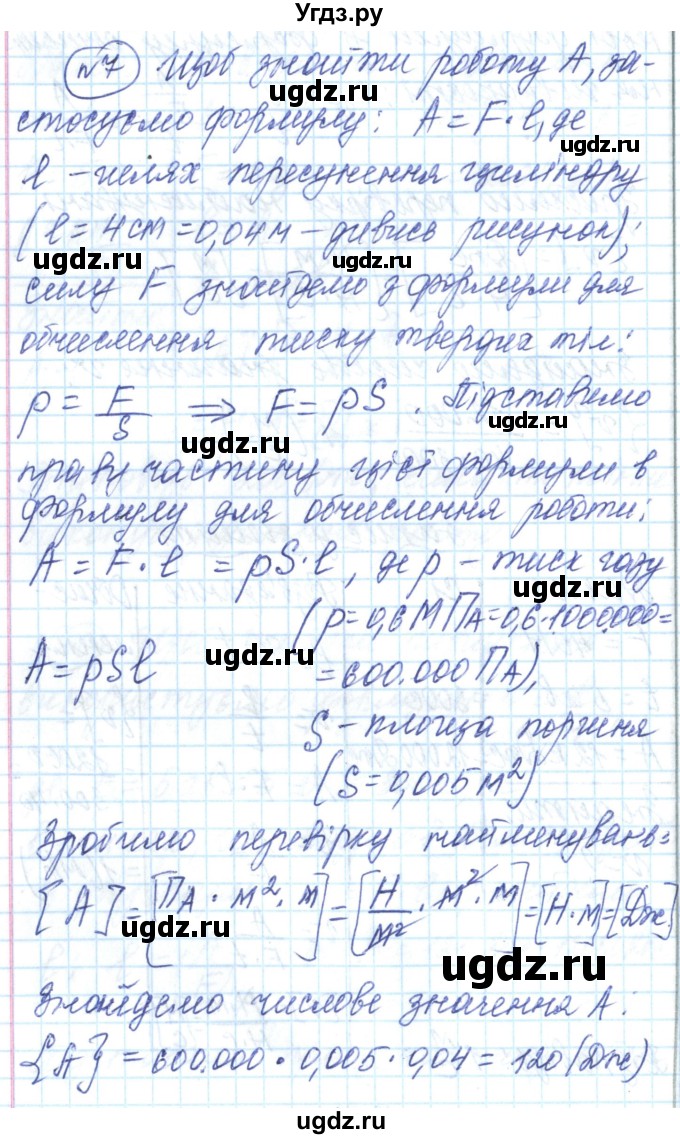 Угдз.ру
№7 Щоб знайти роботу А, за-
стосуємо формулу: A = F · l, де
l – шлях пересунення циліндру
(l = 4 см = 0,04 м – дивись рисунок);
силу F знайдемо з формули для
обчислення тиску твердих тіл:
p = F/S ⇒ F = pS. Підставимо
праву частину цієї формули в
формулу для обчислення роботи:
A = F · l = pS · l, де p – тиск газу
(p = 0,6 МПа = 0,6 · 1000.000 =
A = pSl = 600.000 Па),
S – площа поршня
(S = 0,005 м²)
Зробимо перевірку найменувань:
[A] = [Па · м² · м] = [Н/м² · м² · м] = [Н · м] = [Дж]
Знайдемо числове значення А:
{A} = 600.000 · 0,005 · 0,04 = 120 (Дж)
ugdz.ru
ugdz.ru
ugdz.ru
ugdz.ru
ugdz.ru
ugdz.ru
ugdz.ru
ugdz.ru
ugdz.ru
ugdz.ru
ugdz.ru
ugdz.ru
ugdz.ru